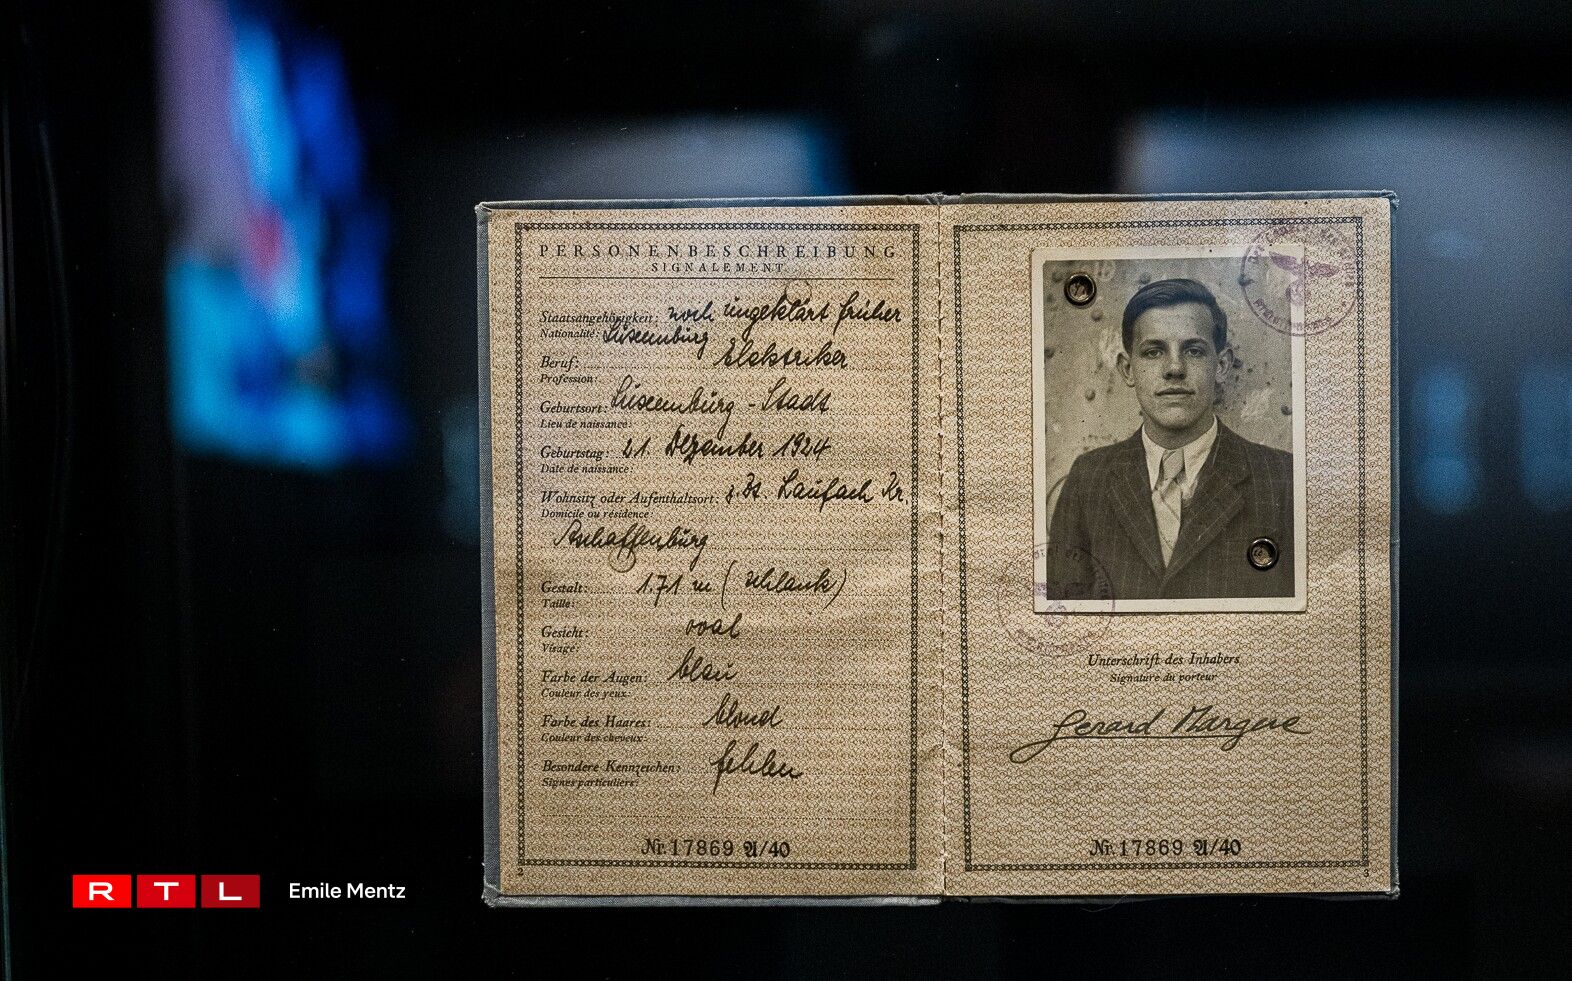 PERSONENBESCHREIBUNG
SIGNALEMENT
Staatsangehörigkeit: noch ungeklärt früher
Nationalité: Luxemburg
Beruf: Elektriker
Profession:
Geburtsort: Luxemburg - Stadt
Lieu de naissance:
Geburtstag: 21. Dezember 1924
Date de naissance:
Wohnsitz oder Aufenthaltsort: z. Zt. Laufach Kr.
Domicile ou résidence:
Aschaffenburg
Gestalt: 1.71 m (schlank)
Taille:
Gesicht: oval
Visage:
Farbe der Augen: blau
Couleur des yeux:
Farbe des Haares: blond
Couleur des cheveux:
Besondere Kennzeichen: fehlen
Signes particuliers:
Nr. 17869 A/40
2
Unterschrift des Inhabers
Signature du porteur
Gerard
Nr. 17869 A/40
3
RTL Emile Mentz